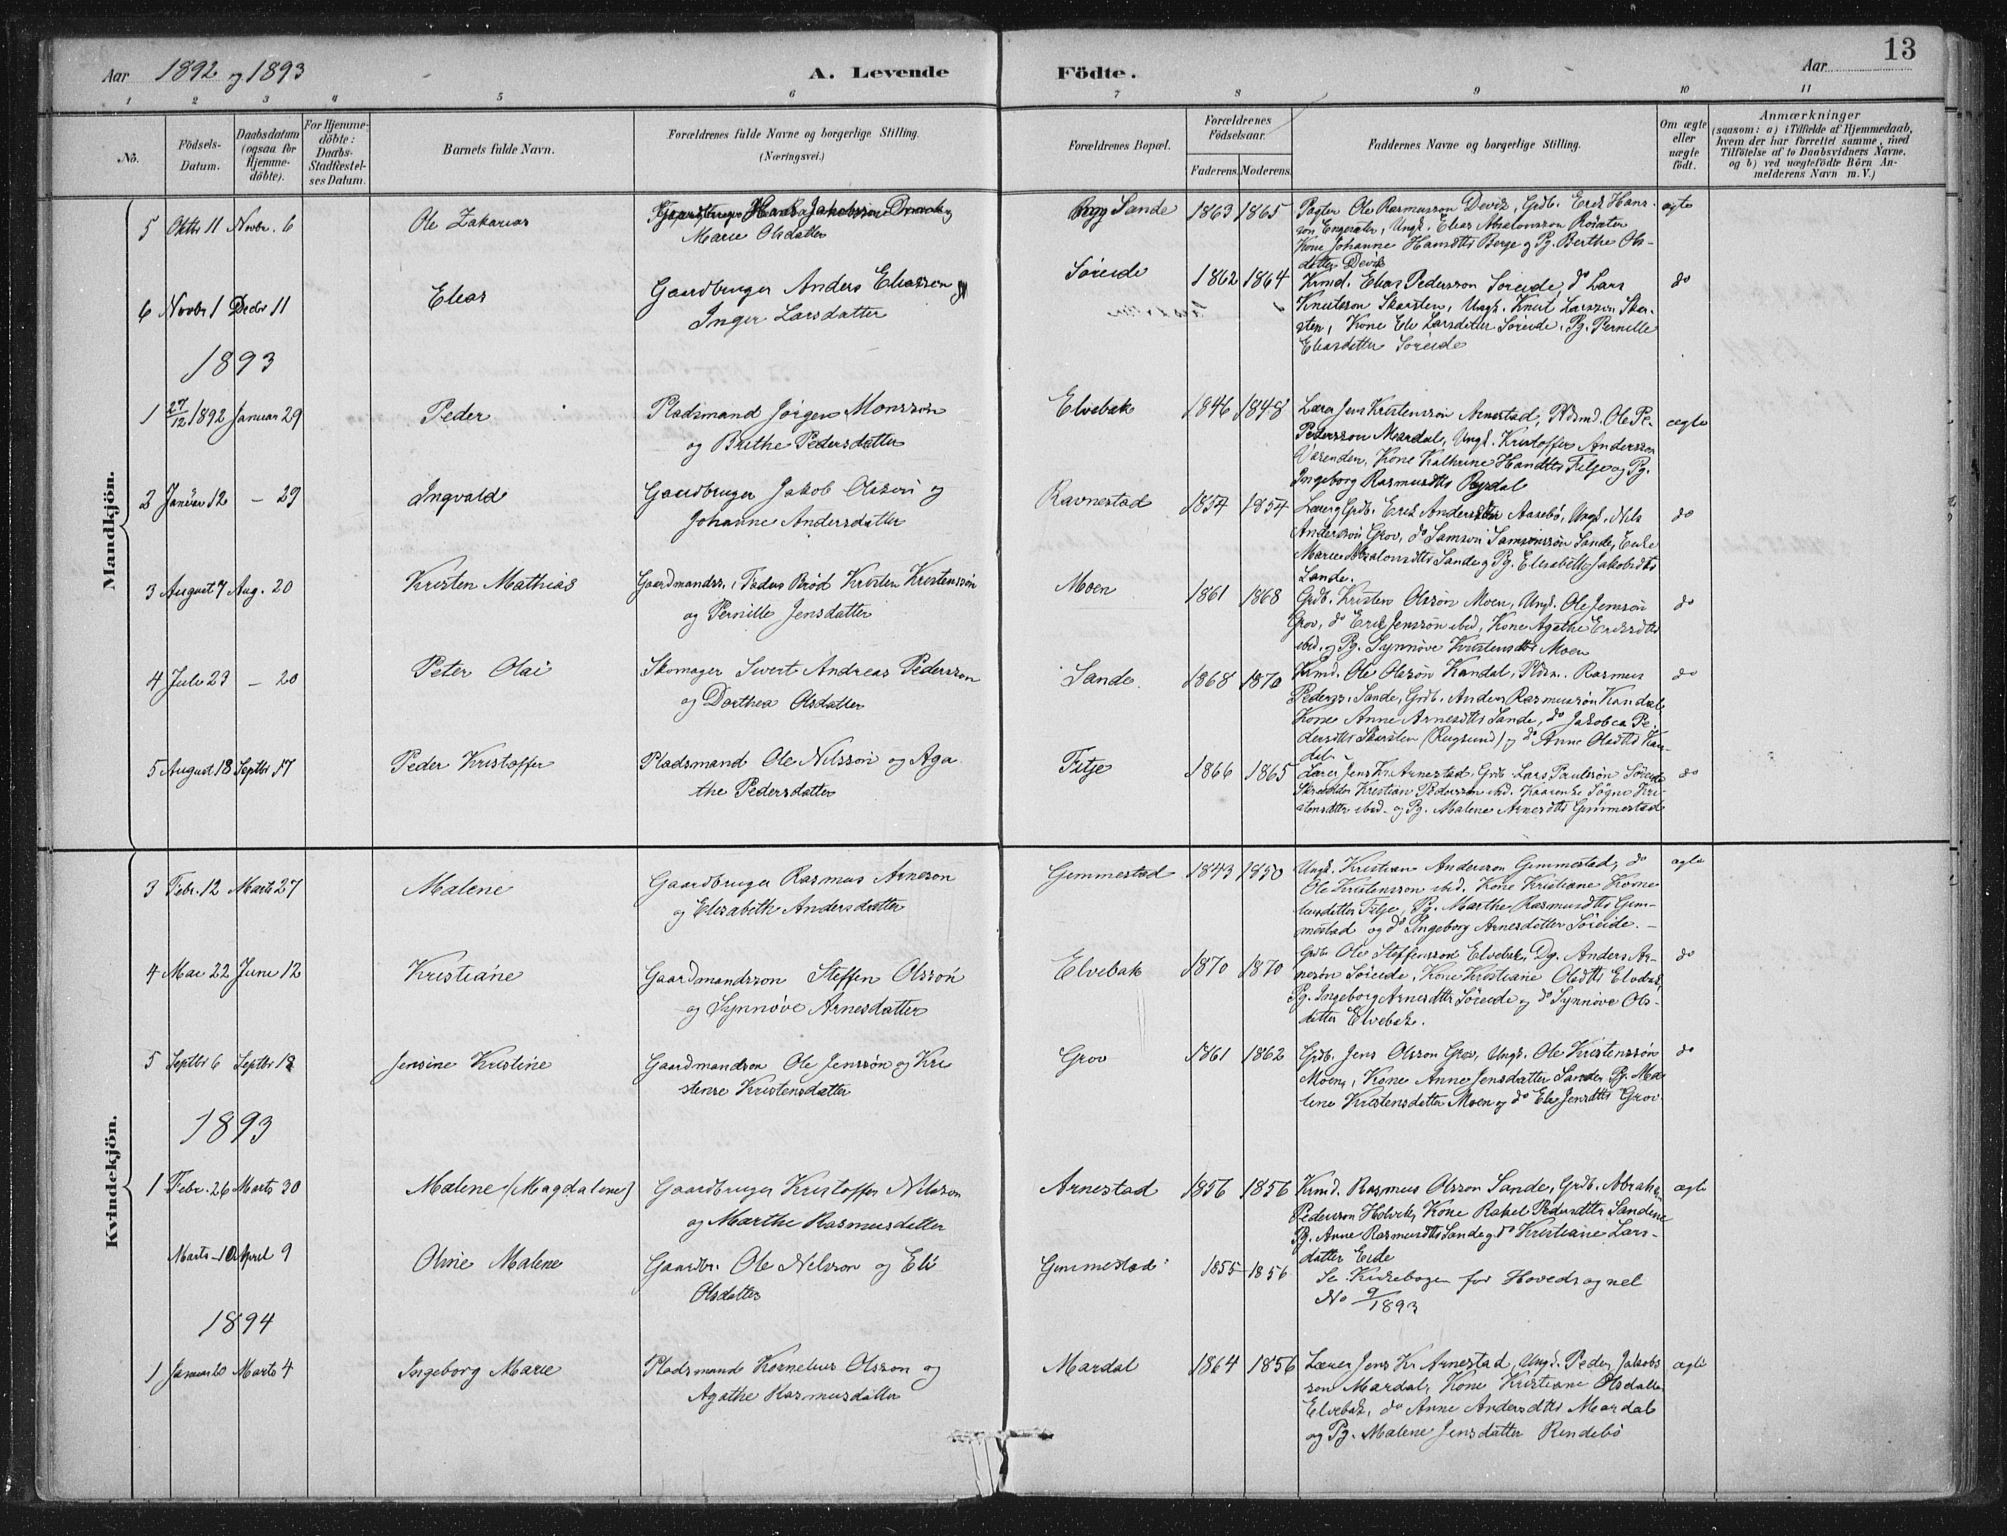 Aar 1892 og 1893 A. Levende Födte. Aar 13
1 2 3 4 5 6 7 8 9 10 11
No.
Födsels-
Datum.
Daabsdatum
(ogsaa for
Hjemme-
döbte).
For Hjemme-
döbte:
Daabs-
Stadfæstel-
ses Datum.
Barnets fulde Navn.
Forældrenes fulde Navne og borgerlige Stilling.
(Næringsvei.)
Forældrenes Bopæl.
Forældrenes
Födselsaar.
Faderens. Moderens.
Faddernes Navne og borgerlige Stilling.
Om ægte
eller
uægte
født.
Anmærkninger
(saasom: a) i Tilfælde af Hjemmedaab,
hvem der har forrettet samme, med
Tilföielse af to Daabsvidners Navne.
og b) ved uægtefödte Börn An-
melderens Navn m. V.)
Mandkjön.
5 Oktbr 11 Novbr. 6 Ole Zakarias
Marie Olsdatter
Sande 1863 1865
Pagter Ole Rasmusson Devik, Grdb. Erik Hans-
son Engesæter, Ungk. Elias Absalonsson
Kone Johanne Hansdtr Berge og Pg. Berthe Ols-
datter Devik
ægte
6 Novbr 1 Decbr 11 Elias
Gaardbruger Anders Eliasson og
Inger Larsdatter
Söreide 1862 1864
Krmd. Elias Pedersson Söreide, do Lars
Knutsson Skarsten, Ungk. Knut Larsson Skar-
sten, Kone Eli Larsdatter Söreide, Pg. Pernille
Eliasdatter Söreide
do
1893
1 27/12 1892 Januar 29 Peder
Pladsmand Jörgen Monssön
og Brithe Pedersdatter
Elvebak 1846 1848
Lærer Jens Kristenssön Arnestad, Pldsmd. Ole Pe-
Pedersson Mardal, Ungk. Kristoffer Andersson
Kone Kathrine Hansdtr Fitje og Pg.
Ingeborg Rasmusdtr Rysdal
ægte
2 Januar 12 — 29 Ingvald
Gaardbruger Jakob Olssön og
Johanne Andersdatter
Ravnestad 1854 1854
Aasebö, Ungk. Nils
Anderssön Grov, do Samson Samsonssön Sande, Enke
Marie Absalonsdtr Sande og Pg. Elisabeth Jakobsdtr
Sande.
do
3 August 7 Aug. 20 Kristen Mathias
Gaardmandss. i Faders Bröd Kristen Kristenssön
og Pernille Jensdatter
Moen 1861 1868
Grdb. Kristen Olssön Moen, Ungk. Ole Jenssön
Grov, do Erik Jenssön ibid, Kone Agathe Eriksdtr
ibid, og Pg. Synnöve Kristensdtr Moen
do
4 Juli 23 — 20 Peter Olai
Skomager Sivert Andreas Pedersson
og Dorthea Olsdatter
Sande 1868 1870
Krmd. Ole Olssön Kandal, Pldsm. Rasmus
Pederss. Sande, Grdb. Anders Rasmussön Kandal
Kone Anne Arnesdtr Sande, do Jakobea Pe-
dersdtr Skarsten (Rugsund) og do Anne Olsdtr Kan-
dal
do
5 August 18 Septbr 17 Peder Kristoffer
Pladsmand Ole Nilssön og Aga
the Pedersdatter
Fitje 1866 1865
Lærer Jens Kr. Arnestad, Grdb. Lars Paulssön Söreide
Skrædder Kristian Pedersson ibid.
ibid. og Pg. Malene Arnesdtr Gimmestad
do
Kvindekjön.
3 Febr. 12 Marts 27 Malene
Gaardbruger Rasmus Arneson
og Elisabeth Andersdatter
Gemmestad 1843 1850
Ungk. Kristian Andersson Gemmestad, do
Ole Kristensson ibid. Kone Kristiane Korne
liusdatter Fitje, Pg. Marthe Rasmusdtr Gem-
mestad og do Ingeborg Arnesdatter Söreide.
ægte
4 Mai 22 Juni 12 Kristiane
Gaardmandsson Steffen Olssön
og Synnöve Arnesdatter
Elvebak 1870 1870
Grdb Ole Steffensson Elvebak, Dg. Anders Ar-
nesön Söreide, Kone Kristiane Olsdtr Elvebak,
Pg. Ingeborg Arnesdtr Söreide og do Synnöve Ols-
datter Elvebak.
do
5 Septbr 6 Septbr 18 Jensine Kristine
Gaardmandson Ole Jenssön og Kri
stense Kristensdatter
Grov 1861 1862
Grdb. Jens Olsson Grov, Ungk. Ole Kristenssön
Moen, Kone Anne Jensdatter Sande, Pg. Ma
lene Kristensdatter Moen og do Eli Jensdtr Grov
do
1893
1 Febr. 26 Marts 30 Malene (Magdalene)
Gaardbruger Kristoffer Nilsson
og Marthe Rasmusdatter
Arnestad 1856 1856
Krmd. Rasmus Olsson Sande, Grdb. Abraham
Pedersson Holvik, Kone Rakel Pedersdtr Sandene
Pg. Anne Rasmusdtr Sande og do Kristiane Lars-
datter Eide
ægte
Marts 10 April 9 Oline Malene
Gaardbr. Ole Nilsson og Eli
Olsdatter
Gemmestad 1855 1856
Se Kirkebogen for Hovedsognet
No 9/1893
1894
1 Januar Marts 4 Ingeborg Marie
Pladsmand Kornelius Olsson og
Agathe Rasmusdatter
Mardal 1864 1856
Lærer Jens Kr. Arnestad, Ungk. Peder Jakobs
son Mardal, Kone Kristiane Olsdatter
Elvebak, do Anne Andersdtr Mardal
og Pg. Malene Jensdatter Rindebö
ægte